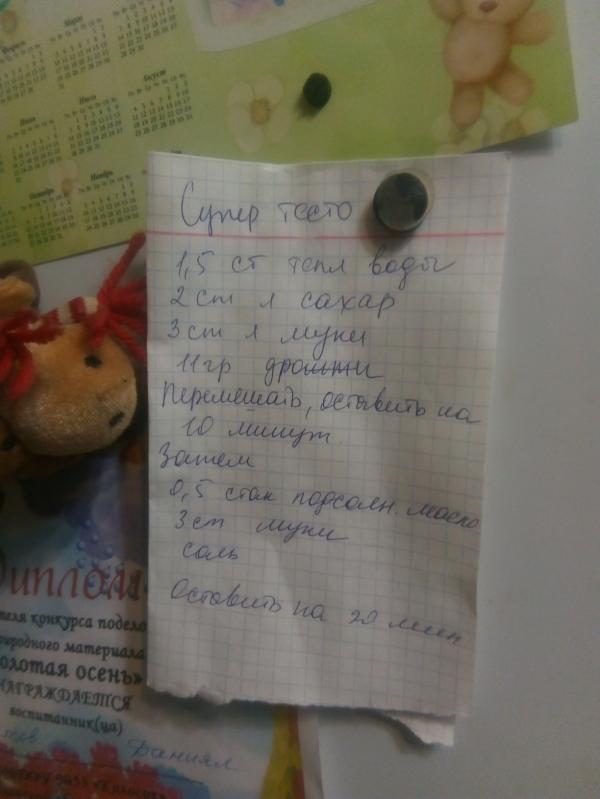 Март
Август
Июль
Октябрь
Ноябрь
Супер тесто
1,5 ст тепл воды
2 ст л сахар
3 ст л муки
11гр дрожжи
Перемешать, оставить на
10 минут.
Затем
0,5 стак подсолн. масло
3 ст муки
соль
Оставить на 20 мин
Диплом
конкурса подело
природного материала
олотая осень»
НАГРАЖДАЕТСЯ
воспитанник(ца)
Даниял